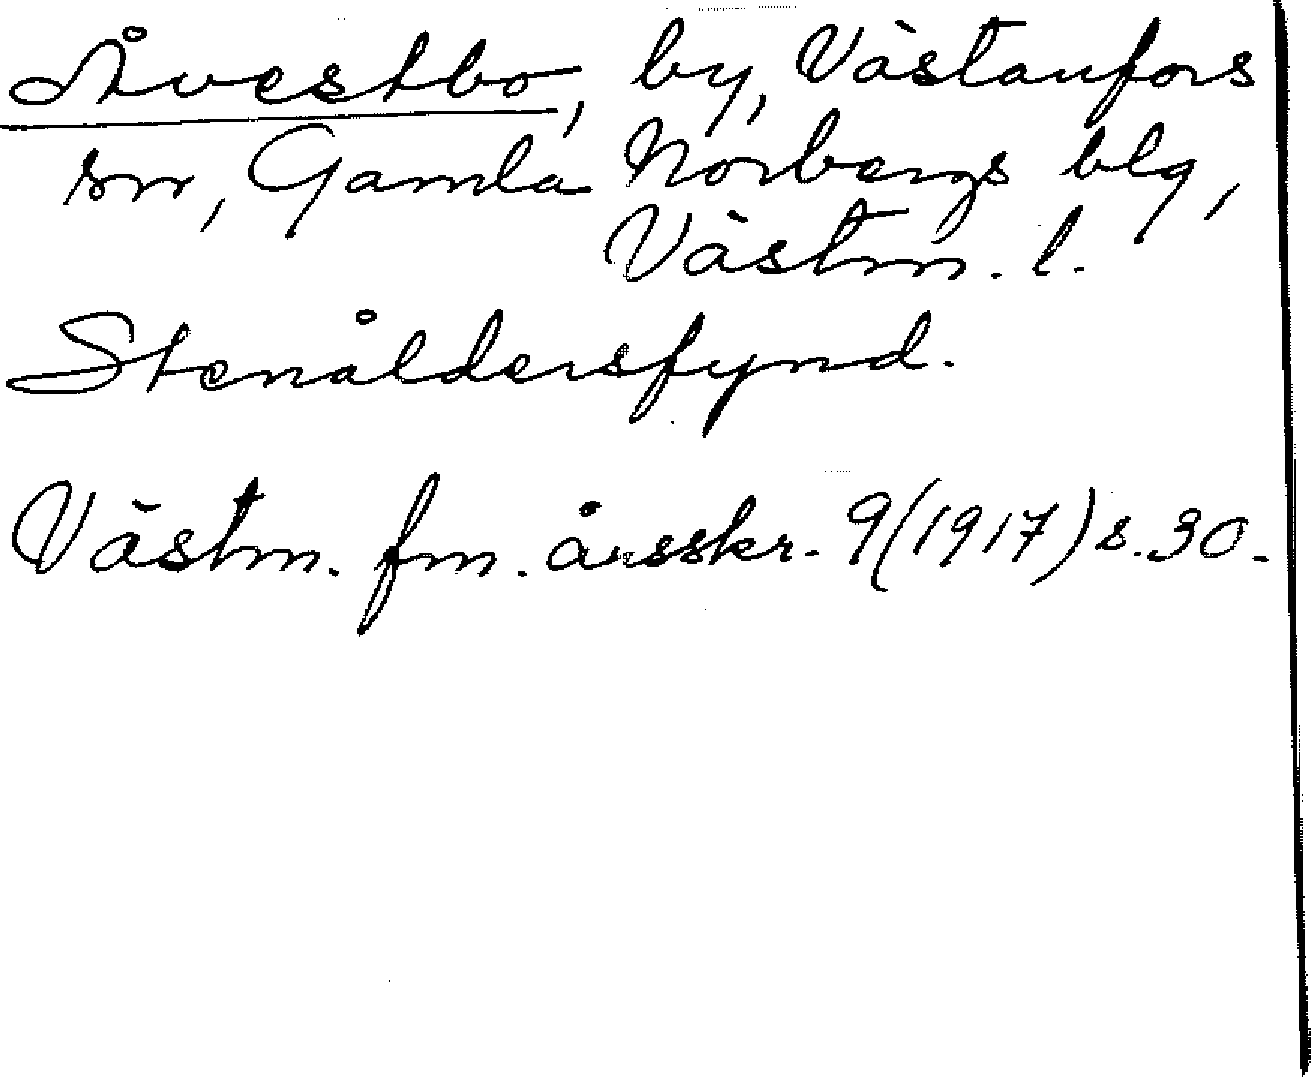 Åvestbo, by, Västanfors
sn, Gamla Norbergs blg,
Västm. l.
Stenåldersfynd.
Västm. fm. årsskr. 9 (1917) s. 30.